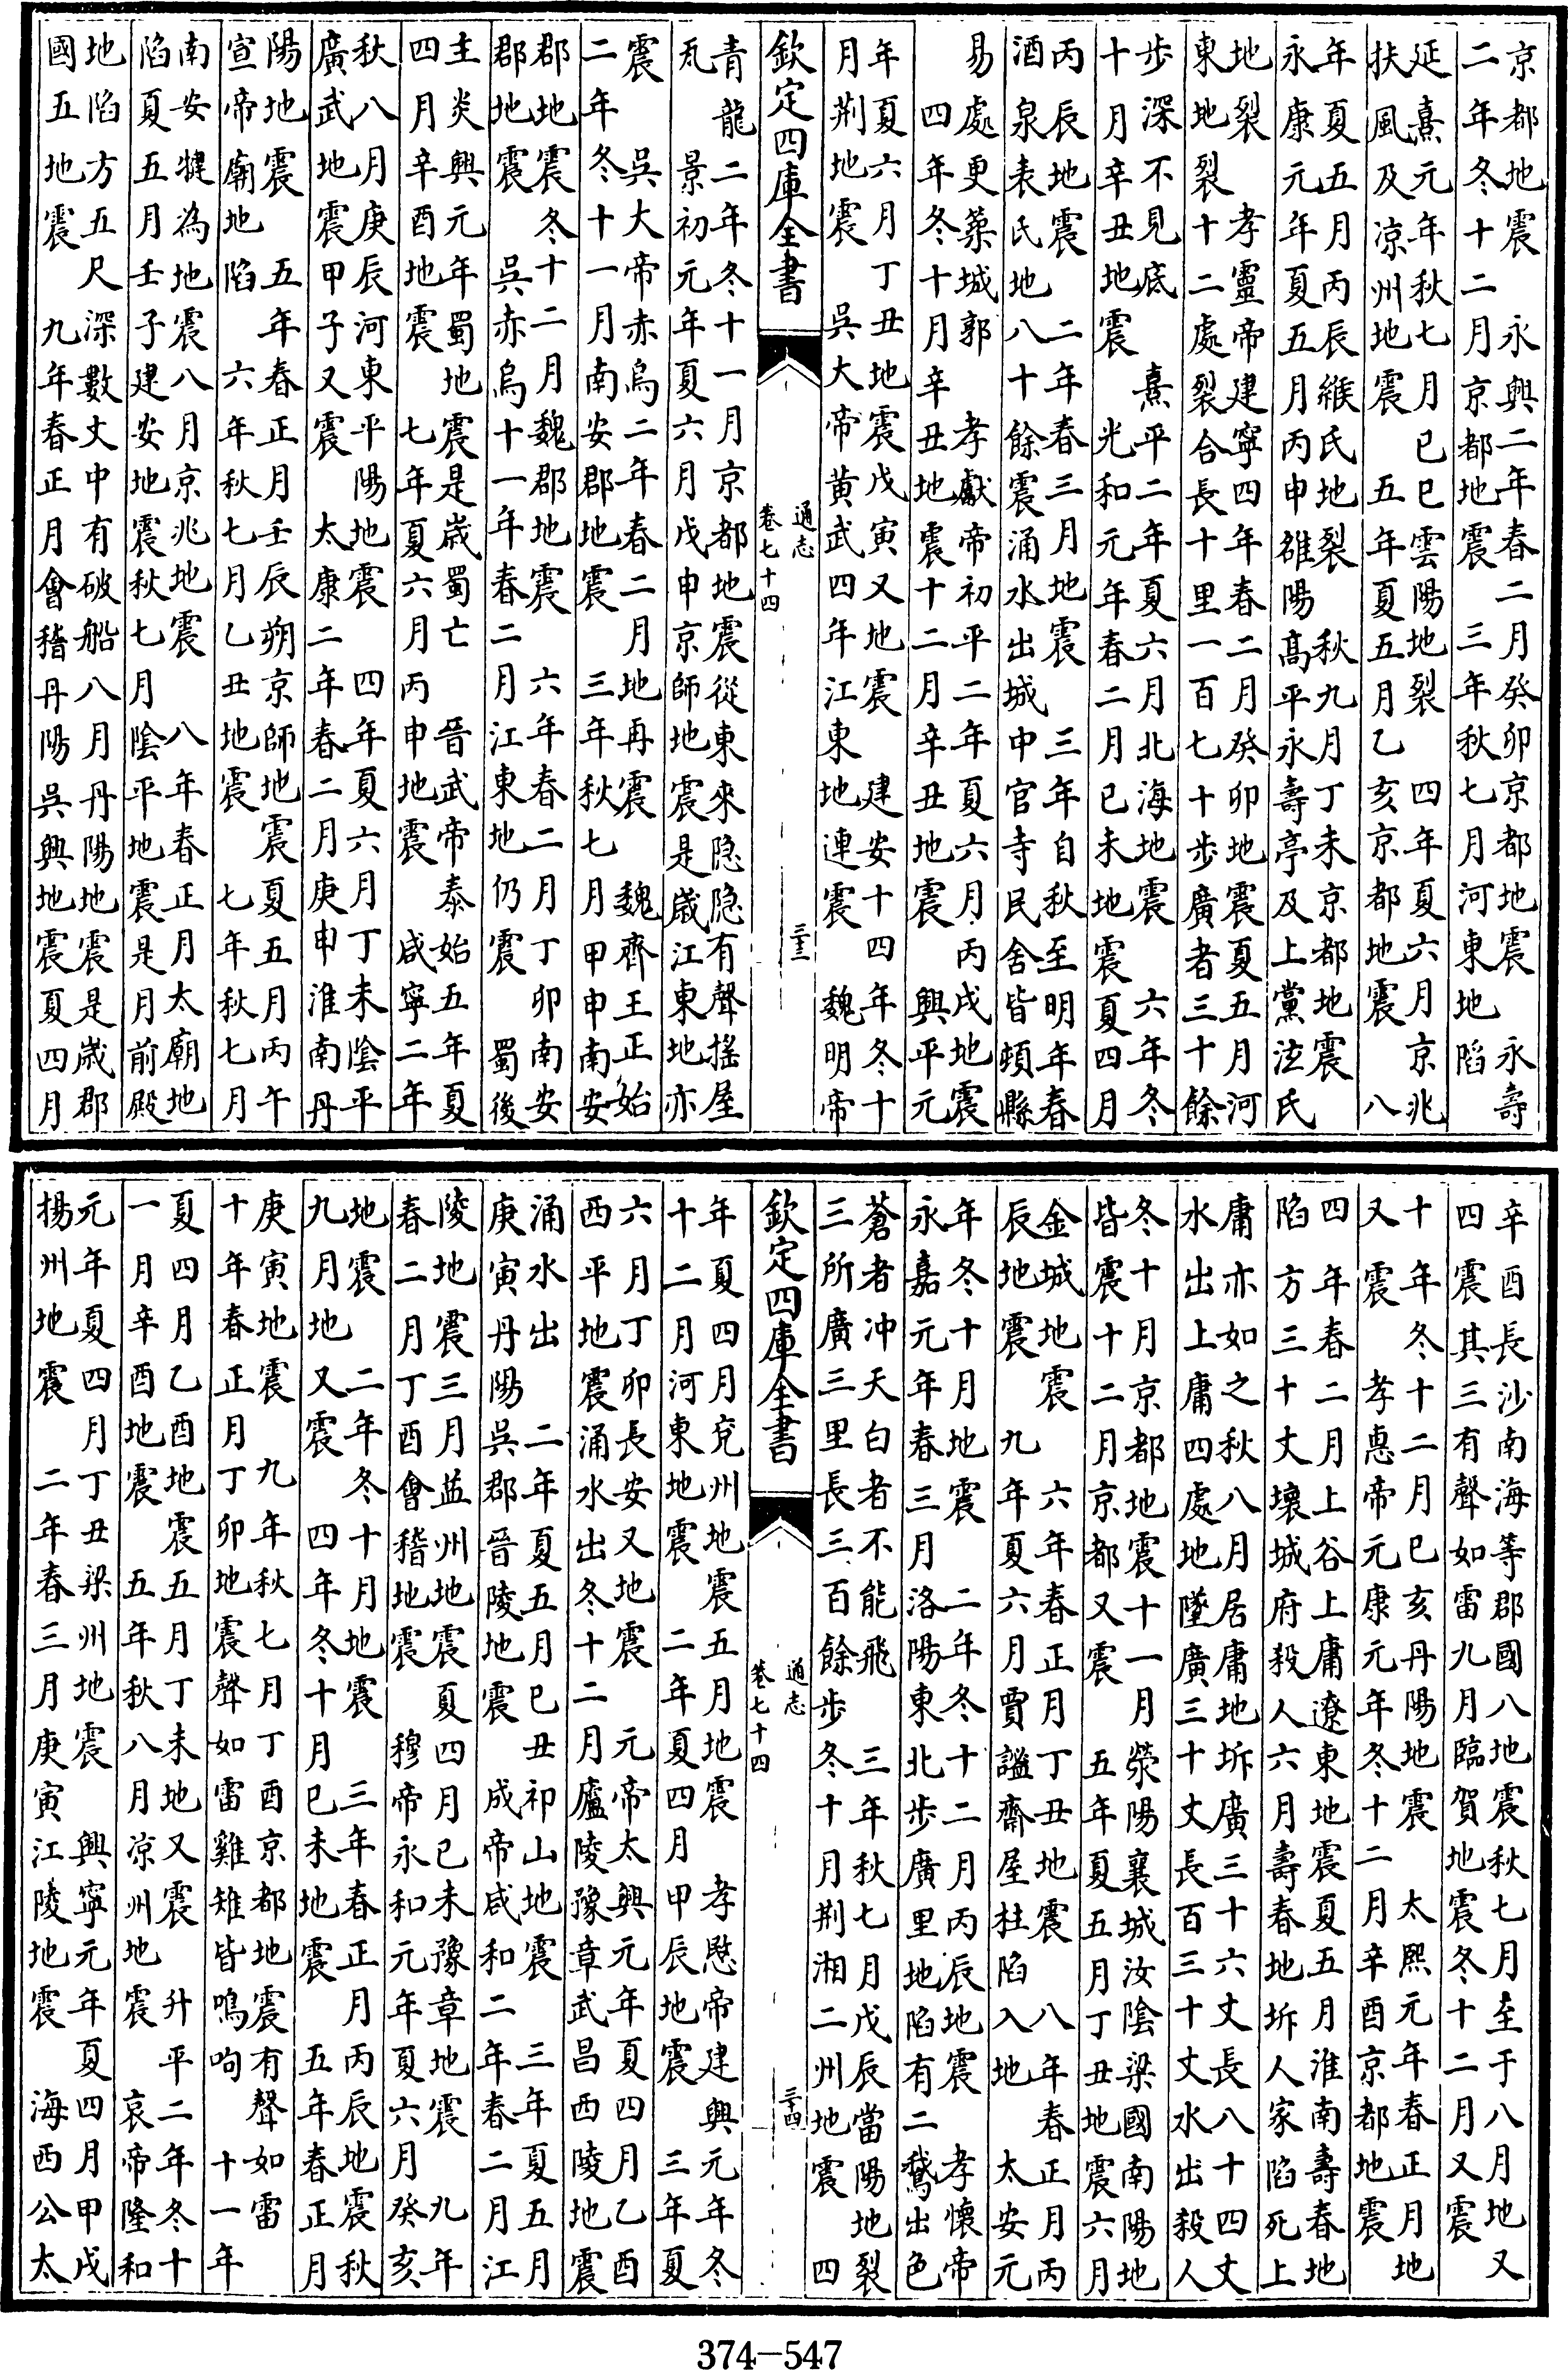 京都地震　永興二年春二月癸卯京都地震　永壽
二年冬十二月京都地震　三年秋七月河東地陷
延熹元年秋七月巳巳雲陽地裂　四年夏六月京兆
扶風及凉州地震　五年夏五月乙亥京都地震　八
年夏五月丙辰緱氏地裂　秋九月丁未京都地震
永康元年夏五月丙申雒陽高平永壽亭及上黨泫氏
地裂　孝靈帝建寧四年春二月癸卯地震夏五月河
東地裂十二處裂合長十里一百七十步廣者三十餘
步深不見底　熹平二年夏六月北海地震　六年冬
十月辛丑地震　光和元年春二月已未地震夏四月
丙辰地震　二年春三月地震　三年自秋至明年春
酒泉表氏地八十餘震涌水出城中官寺民舍皆頓縣
易處更築城郭　孝獻帝初平二年夏六月丙戌地震
四年冬十月辛丑地震十二月辛丑地震　興平元
年夏六月丁丑地震戊寅又地震　建安十四年冬十
月荆地震　吳大帝黄武四年江東地連震　魏明帝
欽定四庫全書
通志
卷七十四
三十三
青龍二年冬十一月京都地震從東來隐隐有聲搖屋
瓦　景初元年夏六月戊申京師地震是歲江東地亦
震　吳大帝赤烏二年春二月地再震　魏齊王正始
二年冬十一月南安郡地震　三年秋七月甲申南安
郡地震冬十二月魏郡地震　六年春二月丁卯南安
郡地震　吳赤烏十一年春二月江東地仍震　蜀後
主炎興元年蜀地震是歲蜀亡　晉武帝泰始五年夏
四月辛酉地震　七年夏六月丙申地震　咸寧二年
秋八月庚辰河東平陽地震　四年夏六月丁未陰平
廣武地震甲子又震　太康二年春二月庚申淮南丹
陽地震　五年春正月壬辰朔京師地震夏五月丙午
宣帝廟地陷　六年秋七月乙丑地震　七年秋七月
南安犍為地震八月京兆地震　八年春正月太廟地
陷夏五月壬子建安地震秋七月陰平地震是月前殿
地陷方五尺深數丈中有破船八月丹陽地震是歲郡
國五地震　九年春正月會稽丹陽吳興地震夏四月
辛酉長沙南海等郡國八地震秋七月至于八月地又
四震其三有聲如雷九月臨賀地震冬十二月又震
十年冬十二月巳亥丹陽地震　太熙元年春正月地
又震　孝惠帝元康元年冬十二月辛酉京都地震
四年春二月上谷上庸遼東地震夏五月淮南壽春地
陷方三十丈壞城府殺人六月壽春地坼人家陷死上
庸亦如之秋八月居庸地坼廣三十六丈長八十四丈
水出上庸四處地墜廣三十丈長百三十丈水出殺人
冬十月京都地震十一月滎陽襄城汝陰梁國南陽地
皆震十二月京都又震　五年夏五月丁丑地震六月
金城地震　六年春正月丁丑地震　八年春正月丙
辰地震　九年夏六月賈謐齋屋柱陷入地　太安元
年冬十月地震　二年冬十二月丙辰地震　孝懷帝
永嘉元年春三月洛陽東北步廣里地陷有二鵞出色
蒼者冲天白者不能飛　三年秋七月戊辰當陽地裂
三所廣三里長三百餘步冬十月荆湘二州地震　四
欽定四庫全書
通志
卷七十四
三十四
年夏四月兗州地震五月地震　孝愍帝建興元年冬
十二月河東地震　二年夏四月甲辰地震　三年夏
六月丁卯長安又地震　元帝太興元年夏四月乙酉
西平地震涌水出冬十二月廬陵豫章武昌西陵地震
涌水出　二年夏五月巳丑祁山地震　三年夏五月
庚寅丹陽吳郡晉陵地震　成帝咸和二年春二月江
陵地震三月益州地震夏四月已未豫章地震　九年
春二月丁酉會稽地震　穆帝永和元年夏六月癸亥
地震　二年冬十月地震　三年春正月丙辰地震秋
九月地又震　四年冬十月巳未地震　五年春正月
庚寅地震　九年秋七月丁酉京都地震有聲如雷
十年春正月丁卯地震聲如雷雞雉皆鳴呴　十一年
夏四月乙酉地震五月丁未地又震　升平二年冬十
一月辛酉地震　五年秋八月凉州地震　哀帝隆和
元年夏四月丁丑梁州地震　興寧元年夏四月甲戌
揚州地震　二年春三月庚寅江陵地震　海西公太
374—547